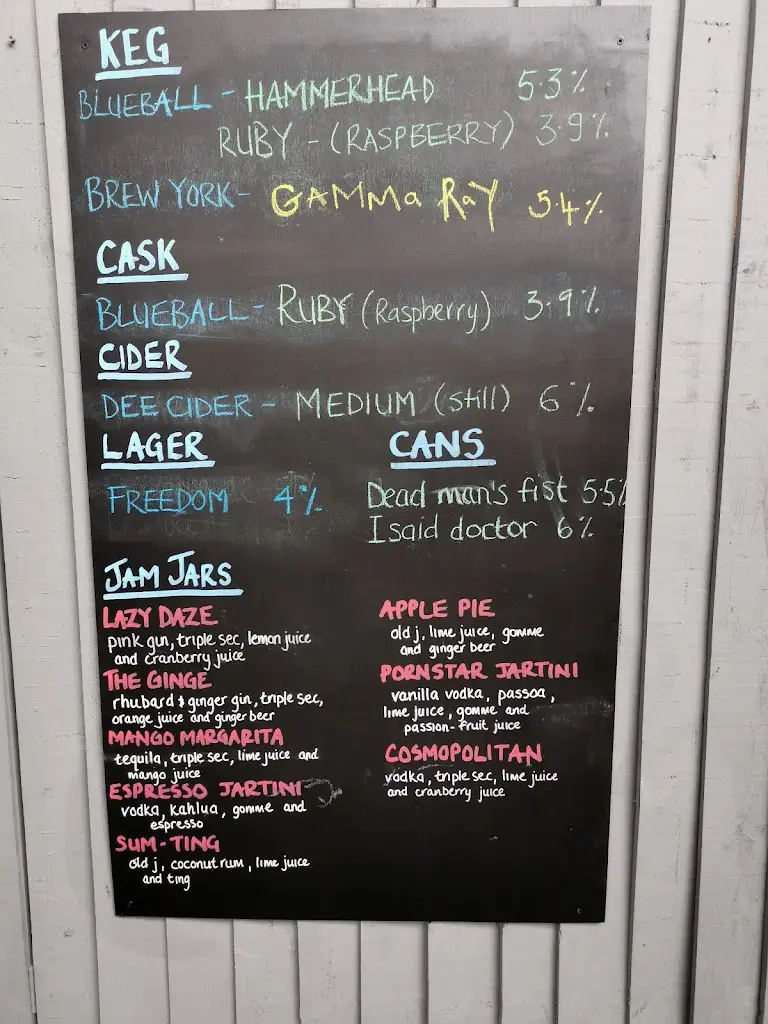 KEG
BLUEBALL - HAMMERHEAD 5.3%
RUBY - (RASPBERRY) 3.9%
BREW YORK - GAMMa RaY 5.4%
CASK
BLUEBALL - RUBY (Raspberry) 3.9%
CIDER
DEE CIDER - MEDIUM (still) 6%
LAGER
FREEDOM 4%
CANS
Dead man's fist 5.5%
I said doctor 6%
JAM JARS
LAZY DAZE
pink gun, triple sec, lemon juice
and cranberry juice
THE GINGE
rhubard & ginger gin, triple sec,
orange juice and ginger beer
MANGO MARGARITA
tequila, triple sec, lime juice and
mango juice
ESPRESSO JARTINI
vodka, kahlua, gomme and
espresso
SUM-TING
old j, coconut rum, lime juice
and ting
APPLE PIE
old j, lime juice, gomme
and ginger beer
PORNSTAR JARTINI
vanilla vodka, passoa,
lime juice, gomme and
passion-fruit juice
COSMOPOLITAN
vodka, triple sec, lime juice
and cranberry juice